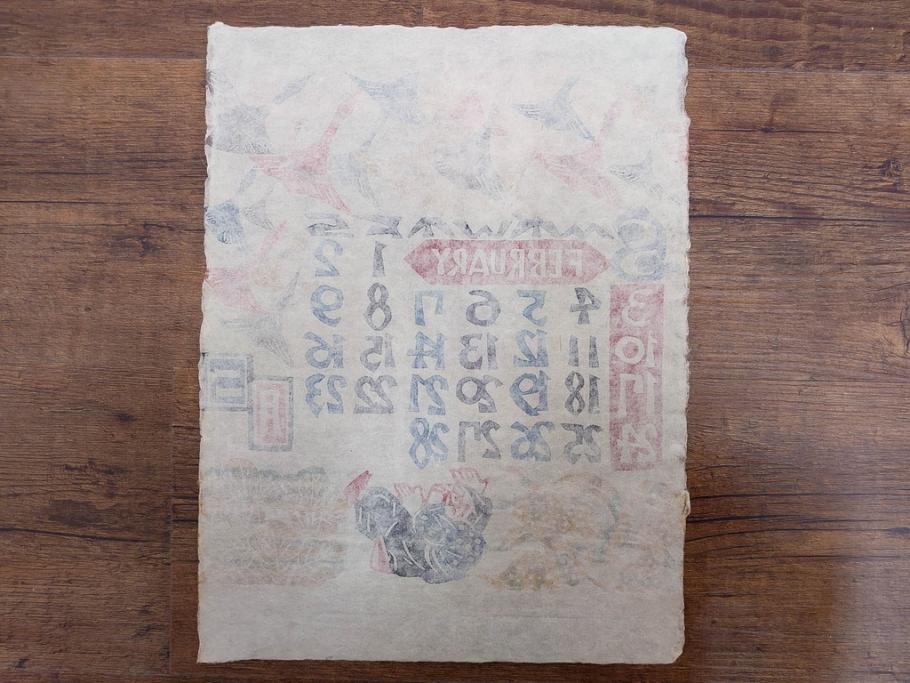 S
FEBRUARY 1 2
3 4 5 6 7 8 9
10 11 12 13 14 15 16
17 18 19 20 21 22 23
24 25 26 27 28
月